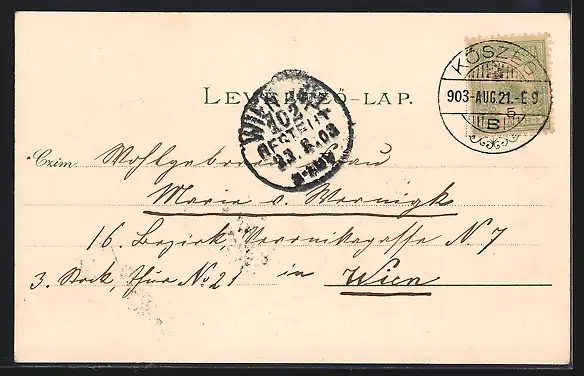 KŐSZEG
903-AUG.21.-E9
B
5
LEVELEZŐ-LAP.
WIEN
102
BESTELLT
23.8.03
Czim. Wohlgeboren Frau
Marie v. Wernigk
16. Bezirk, Veronikagasse N 7
3. Stock, thür No 21 in Wien